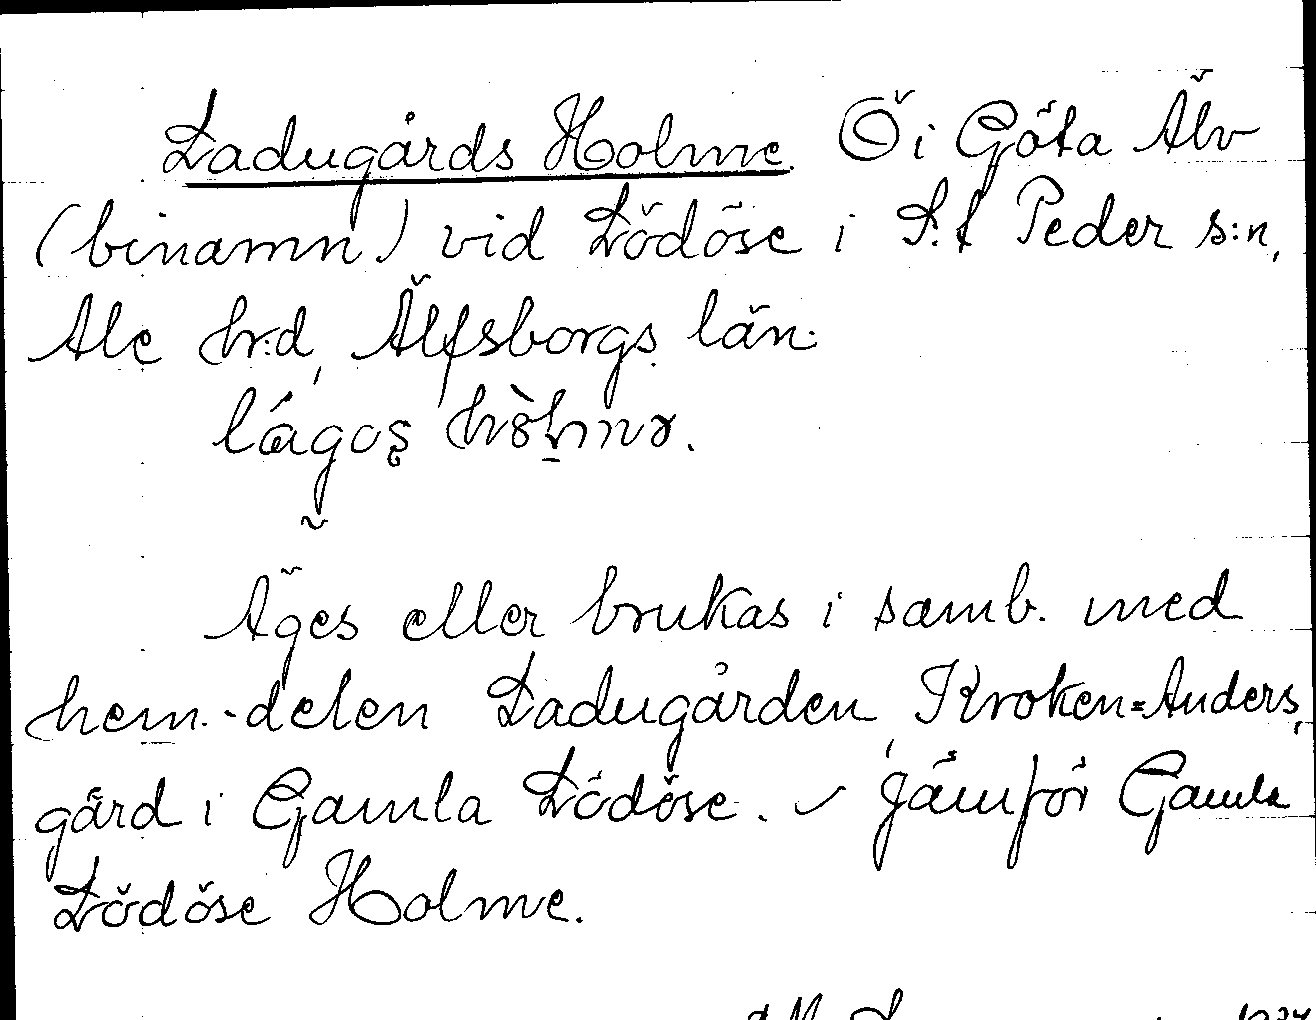 Ladugårds Holme. Ö i Göta Älv
(binamn) vid Lödöse i S:t Peder s:n,
Ale hr:d, Älfsborgs län.
Äges eller brukas i samb. med
hem.-delen Ladugården, Kroken=Anders,
gård i Gamla Lödöse. jämför Gamla
Lödöse Holme.